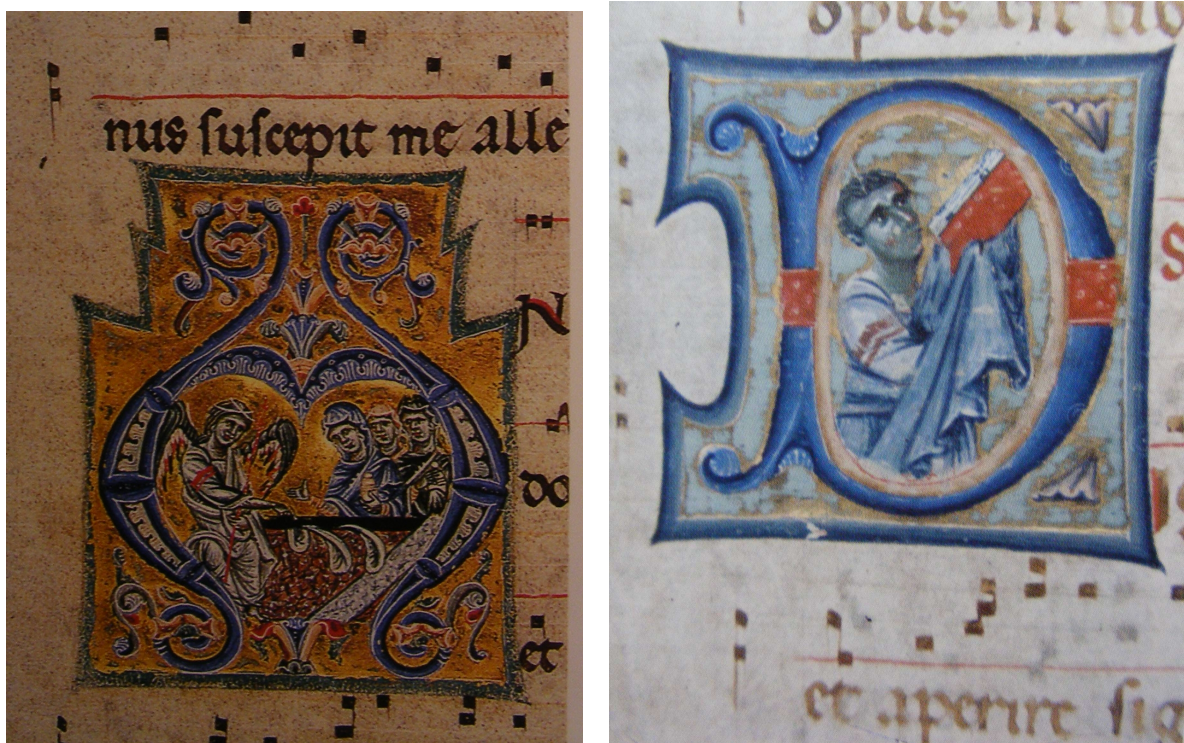 nus suscepit me alle
N
do
et
opus est tib
D
S
et aperire sig